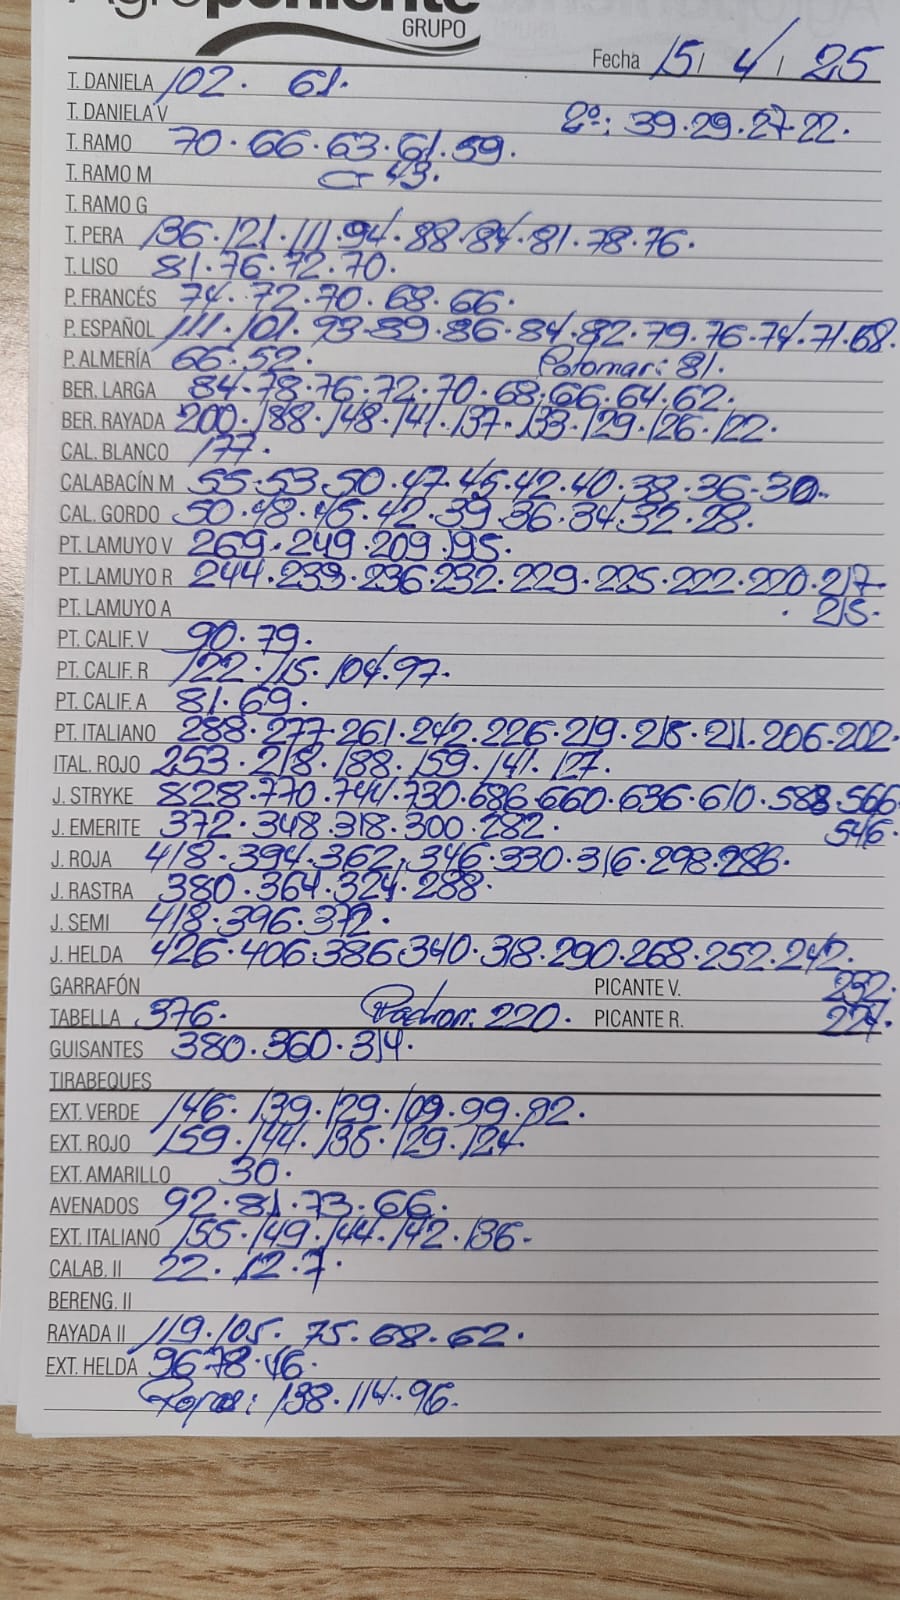 Agroponiente
GRUPO
Fecha 15/ 4/ 25
T. DANIELA 102. 61.
T. DANIELA V 2º: 39.29.27.22.
T. RAMO 70.66.63.61.59.
T. RAMO M 43.
T. RAMO G
T. PERA 136.121.111.94.88.84.81.78.76.
T. LISO 81.76.72.70.
P. FRANCÉS 74.72.70.68.66.
P. ESPAÑOL 111.101.93.89.86.84.82.79.76.74.71.68.
P. ALMERÍA 66.52. Potomar: 81.
BER. LARGA 84.78.76.72.70.68.66.64.62.
BER. RAYADA 200.188.148.141.137.133.129.126.122.
CAL. BLANCO 177.
CALABACÍN M 55.53.50.47.45.42.40.38.36.30.
CAL. GORDO 50.48.45.42.39.36.34.32.28.
PT. LAMUYO V 269.249.209.195.
PT. LAMUYO R 244.239.236.232.229.225.222.220.217.
PT. LAMUYO A . 215.
PT. CALIF. V 90.79.
PT. CALIF. R 122.115.104.97.
PT. CALIF. A 81.69.
PT. ITALIANO 288.277.261.242.226.219.215.211.206.202.
ITAL. ROJO 253.218.188.159.141.127.
J. STRYKE 828.770.744.730.686.660.636.610.588.566
J. EMERITE 372.348.318.300.282. 546.
J. ROJA 418.394.362.346.330.316.298.286.
J. RASTRA 380.364.324.288.
J. SEMI 418.396.372.
J. HELDA 426.406.386.340.318.290.268.252.242.
GARRAFÓN PICANTE V. 232.
TABELLA 376. 220. PICANTE R. 224.
GUISANTES 380.360.314.
TIRABEQUES
EXT. VERDE 146.139.129.109.99.92.
EXT. ROJO 159.144.135.129.124.
EXT. AMARILLO 30.
AVENADOS 92.81.73.66.
EXT. ITALIANO 155.149.144.142.136.
CALAB. II 22.12.7.
BERENG. II
RAYADA II 119.105.75.68.62.
EXT. HELDA 96.78.46.
138.114.96.